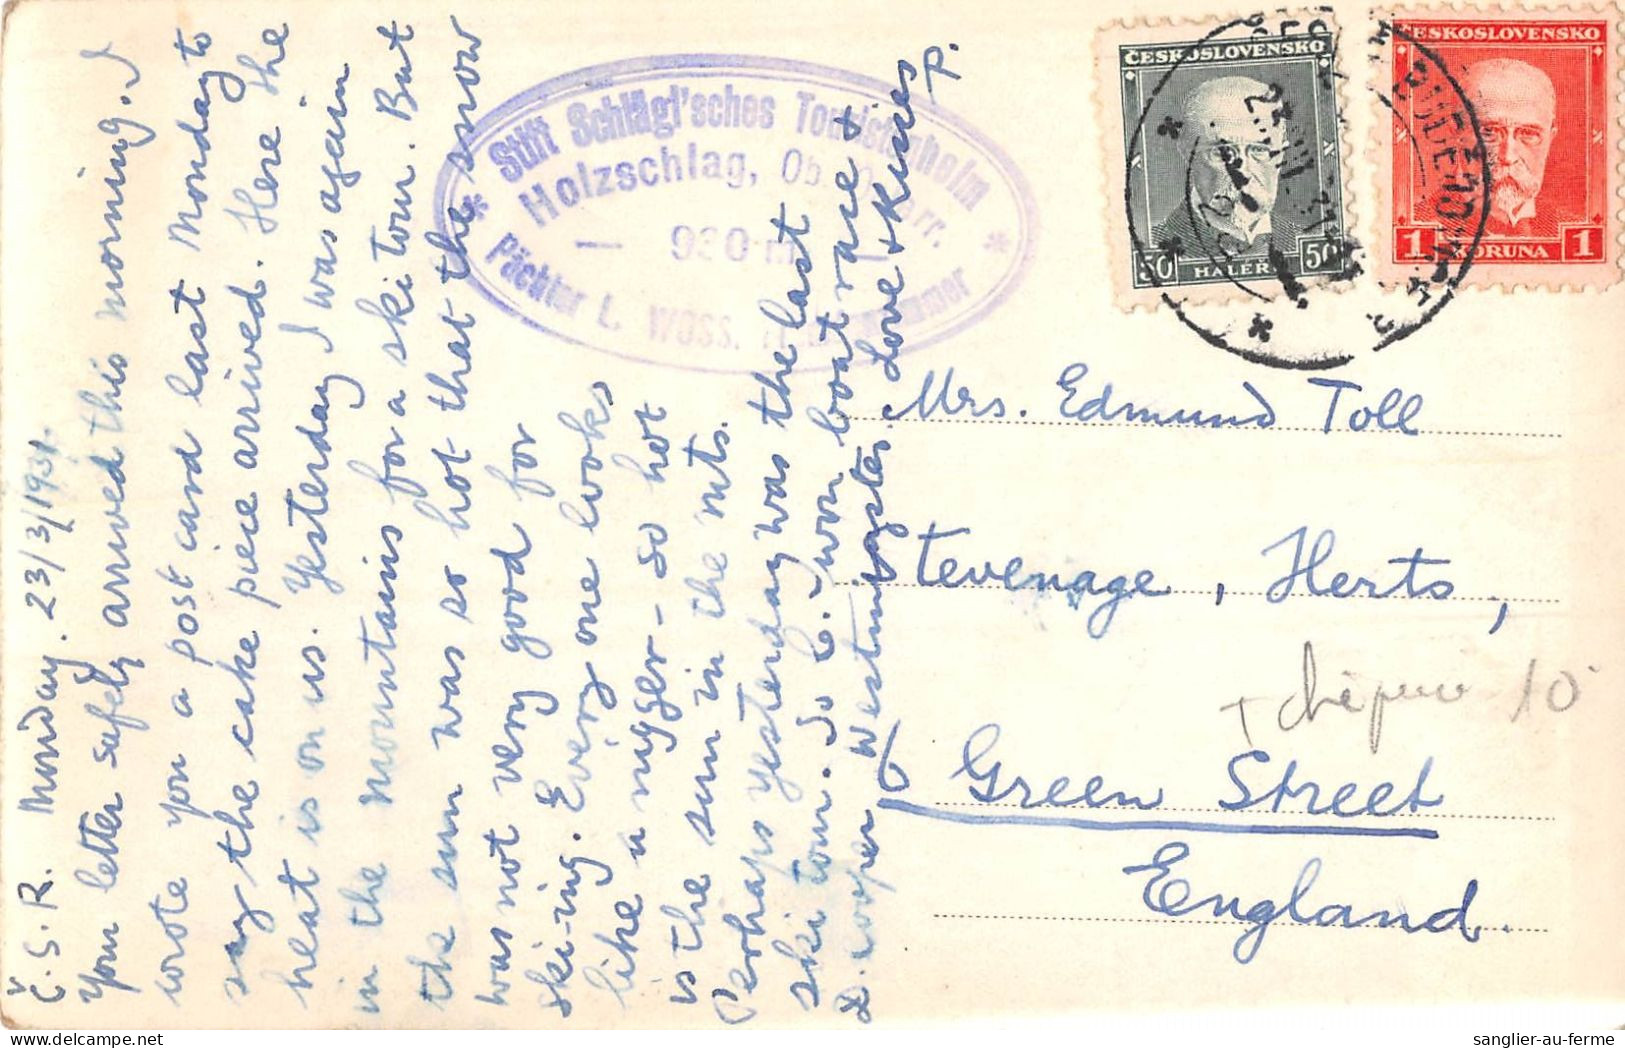 Č.S.R. Monday. 23/3/1931.
Your letter safely arrived this morning. I
wrote you a post card last Monday to
say the cake piece arrived. Here the
heat is on us. Yesterday I was again
in the mountains for a ski tour. But
the sun was so hot that the snow
was not very good for
ski-ing. Every one looks
like a nigger - so hot
is the sun in the mts.
Perhaps yesterday was the last
ski tour. So C. won boat race &
D. Cooper Westminster. Love & Kisses
P.
* Stift Schlägl'sches Touristenheim *
Holzschlag, Ob. Österr.
— 930 m —
Pächter L. Woss,
ČESKOSLOVENSKO
50 HALÉŘŮ 50
ČESKOSLOVENSKO
1 KORUNA 1
23.III.31
Mrs. Edmund Toll
Stevenage, Herts,
6 Green Street
England.
10
sanglier-au-ferme